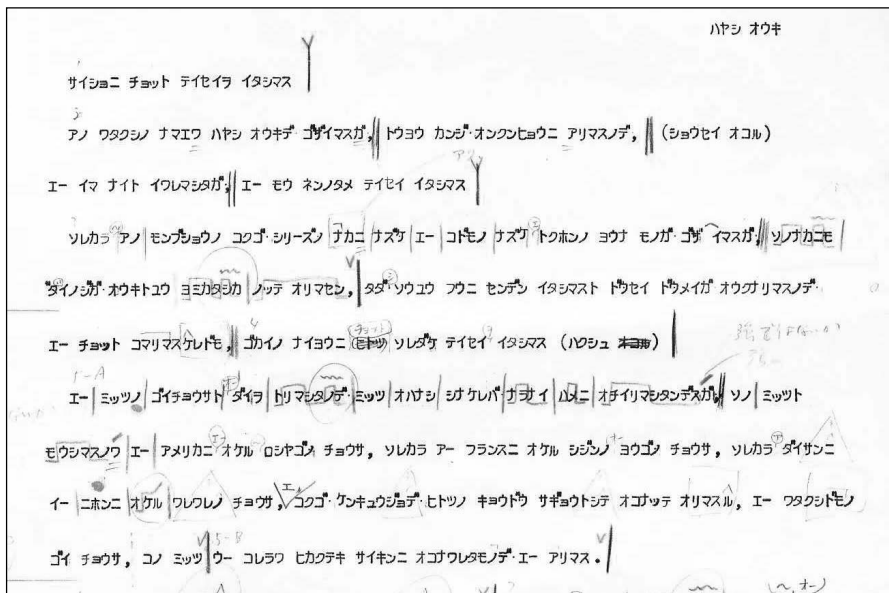 ハヤシ オウキ
サイショニ チョット テイセイヲ イタシマス
アノ ワタクシノ ナマエワ ハヤシ オウキデ ゴザイマスガ, トウヨウ カンジ・オンクンヒョウニ アリマスノデ, (ショウセイ オコル)
エー イマ ナイト イワレマシタガ, エー モウ ネンノタメ テイセイ イタシマス
ソレカラ アノ モンブショウノ コクゴ・シリーズノ ナカニ ナズケ エー コドモノ ナズケ トクホンノ ヨウナ モノガ・ゴザ イマスガ, ソノナカニモ
ダイノジガ・オウキトユウ ヨミカタシカ ノッテ オリマセン, タダ ソウユウ フウニ センデン イタシマスト ドウセイ ドウメイガ オウクナリマスノデ・
エー チョット コマリマスケレドモ, ゴカイノ ナイヨウニ チョット ソレダケ テイセイ イタシマス (ハクシュ)
5-A
エー ミッツノ ゴイチョウサト ダイヲ トリマシタノデ・ミッツ オハナシ シナケレバ ナラナイ ハメニ オチイリマシタンデスガ, ソノ ミッツト
モウシマスノワ エー アメリカニ オケル ロシヤゴノ チョウサ, ソレカラ アー フランスニ オケル シジンノ ヨウゴノ チョウサ, ソレカラ ダイサンニ
イー ニホンニ オケル ワレワレノ チョウサ, コクゴ・ケンキュウジョデ・ヒトツノ キョウドウ サギョウトシテ オコナッテ オリマスル, エー ワタクシドモノ
5-B
ゴイ チョウサ, コノ ミッツ ウー コレラワ ヒカクテキ サイキンニ オコナワレタモノデ・エー アリマス.